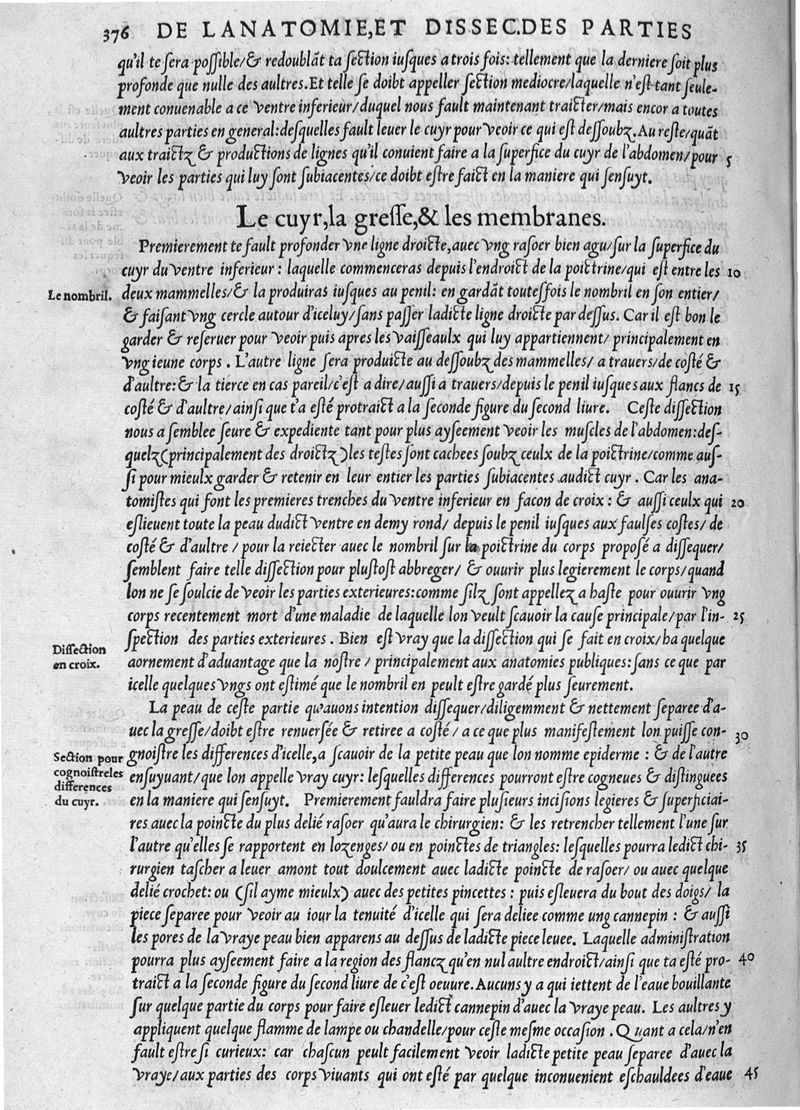 376 DE LANATOMIE,ET DISSEC.DES PARTIES
qu'il te sera possible/& redoublãt ta section iusques a trois fois: tellement que la derniere soit plus
profonde que nulle des aultres. Et telle se doibt appeller section mediocre/laquelle n'est tant seule-
ment conuenable a ce ventre inferieur/duquel nous fault maintenant traicter/mais encor a toutes
aultres parties en general:desquelles fault leuer le cuyr pour veoir ce qui est dessoubz. Au reste/quãt
aux traictz & productions de lignes qu'il conuient faire a la superfice du cuyr de l'abdomen/pour 5
veoir les parties qui luy sont subiacentes/ce doibt estre faict en la maniere qui sensuyt.
Le cuyr,la gresse,& les membranes.
Premierement te fault profonder vne ligne droicte,auec vng rasoer bien agu/sur la superfice du
cuyr du ventre inferieur : laquelle commenceras depuis l'endroict de la poictrine/qui est entre les 10
Le nombril. deux mammelles/& la produiras iusques au penil: en gardãt toutesfois le nombril en son entier/
& faisant vng cercle autour d'iceluy/sans passer ladicte ligne droicte par dessus. Car il est bon le
garder & reseruer pour veoir puis apres les vaisseaulx qui luy appartiennent/ principalement en
vng ieune corps . L'autre ligne sera produicte au dessoubz des mammelles/ a trauers/de costé &
d'aultre:& la tierce en cas pareil/c'est a dire/aussi a trauers/depuis le penil iusques aux flancs de 15
costé & d'aultre/ainsi que t'a esté protraict a la seconde figure du second liure. Ceste dissection
nous a semblee seure & expediente tant pour plus ayseement veoir les muscles de l'abdomen:des-
quelz(principalement des droictz)les testes sont cachees soubz ceulx de la poictrine/comme aus-
si pour mieulx garder & retenir en leur entier les parties subiacentes audict cuyr . Car les ana-
tomistes qui font les premieres trenches du ventre inferieur en facon de croix : & aussi ceulx qui 20
eslieuent toute la peau dudict ventre en demy rond/ depuis le penil iusques aux faulses costes/ de
costé & d'aultre / pour la reiecter auec le nombril sur la poictrine du corps proposé a dissequer/
semblent faire telle dissection pour plustost abbreger/ & ouurir plus legierement le corps/quand
lon ne se soulcie de veoir les parties exterieures:comme silz sont appellez a haste pour ouurir vng
corps recentement mort d'une maladie de laquelle lon veult scauoir la cause principale/par l'in- 25
spection des parties exterieures . Bien est vray que la dissection qui se fait en croix/ha quelque
Dissection
en croix.
aornement d'aduantage que la nostre / principalement aux anatomies publiques:sans ce que par
icelle quelques vngs ont estimé que le nombril en peult estre gardé plus seurement.
La peau de ceste partie qu'auons intention dissequer/diligemment & nettement separee d'a-
uec la gresse/doibt estre renuersée & retiree a costé / a ce que plus manifestement lon puisse con- 30
Section pour
cognoistre les
differences
du cuyr.
gnoistre les differences d'icelle,a scauoir de la petite peau que lon nomme epiderme : & de l'autre
ensuyuant/que lon appelle vray cuyr: lesquelles differences pourront estre cogneues & distinguees
en la maniere qui sensuyt. Premierement fauldra faire plusieurs incisions legieres & superficiai-
res auec la poincte du plus delié rasoer qu'aura le chirurgien: & les retrencher tellement l'une sur
l'autre qu'elles se rapportent en lozenges/ ou en poinctes de triangles: lesquelles pourra ledict chi- 35
rurgien tascher a leuer amont tout doulcement auec ladicte poincte de rasoer/ ou auec quelque
delié crochet: ou (sil ayme mieulx) auec des petites pincettes : puis esleuera du bout des doigs/ la
piece separee pour veoir au iour la tenuité d'icelle qui sera deliee comme ung cannepin : & aussi
les pores de la vraye peau bien apparens au dessus de ladicte piece leuee. Laquelle administration
pourra plus ayseement faire a la region des flancz qu'en nul aultre endroict/ainsi que ta esté pro- 40
traict a la seconde figure du second liure de c'est oeuure. Aucuns y a qui iettent de l'eaue bouillante
sur quelque partie du corps pour faire esleuer ledict cannepin d'auec la vraye peau. Les aultres y
appliquent quelque flamme de lampe ou chandelle/pour ceste mesme occasion . Quant a cela/n'en
fault estre si curieux: car chascun peult facilement veoir ladicte petite peau separee d'auec la
vraye/aux parties des corps viuants qui ont esté par quelque inconuenient eschauldees d'eaue 45